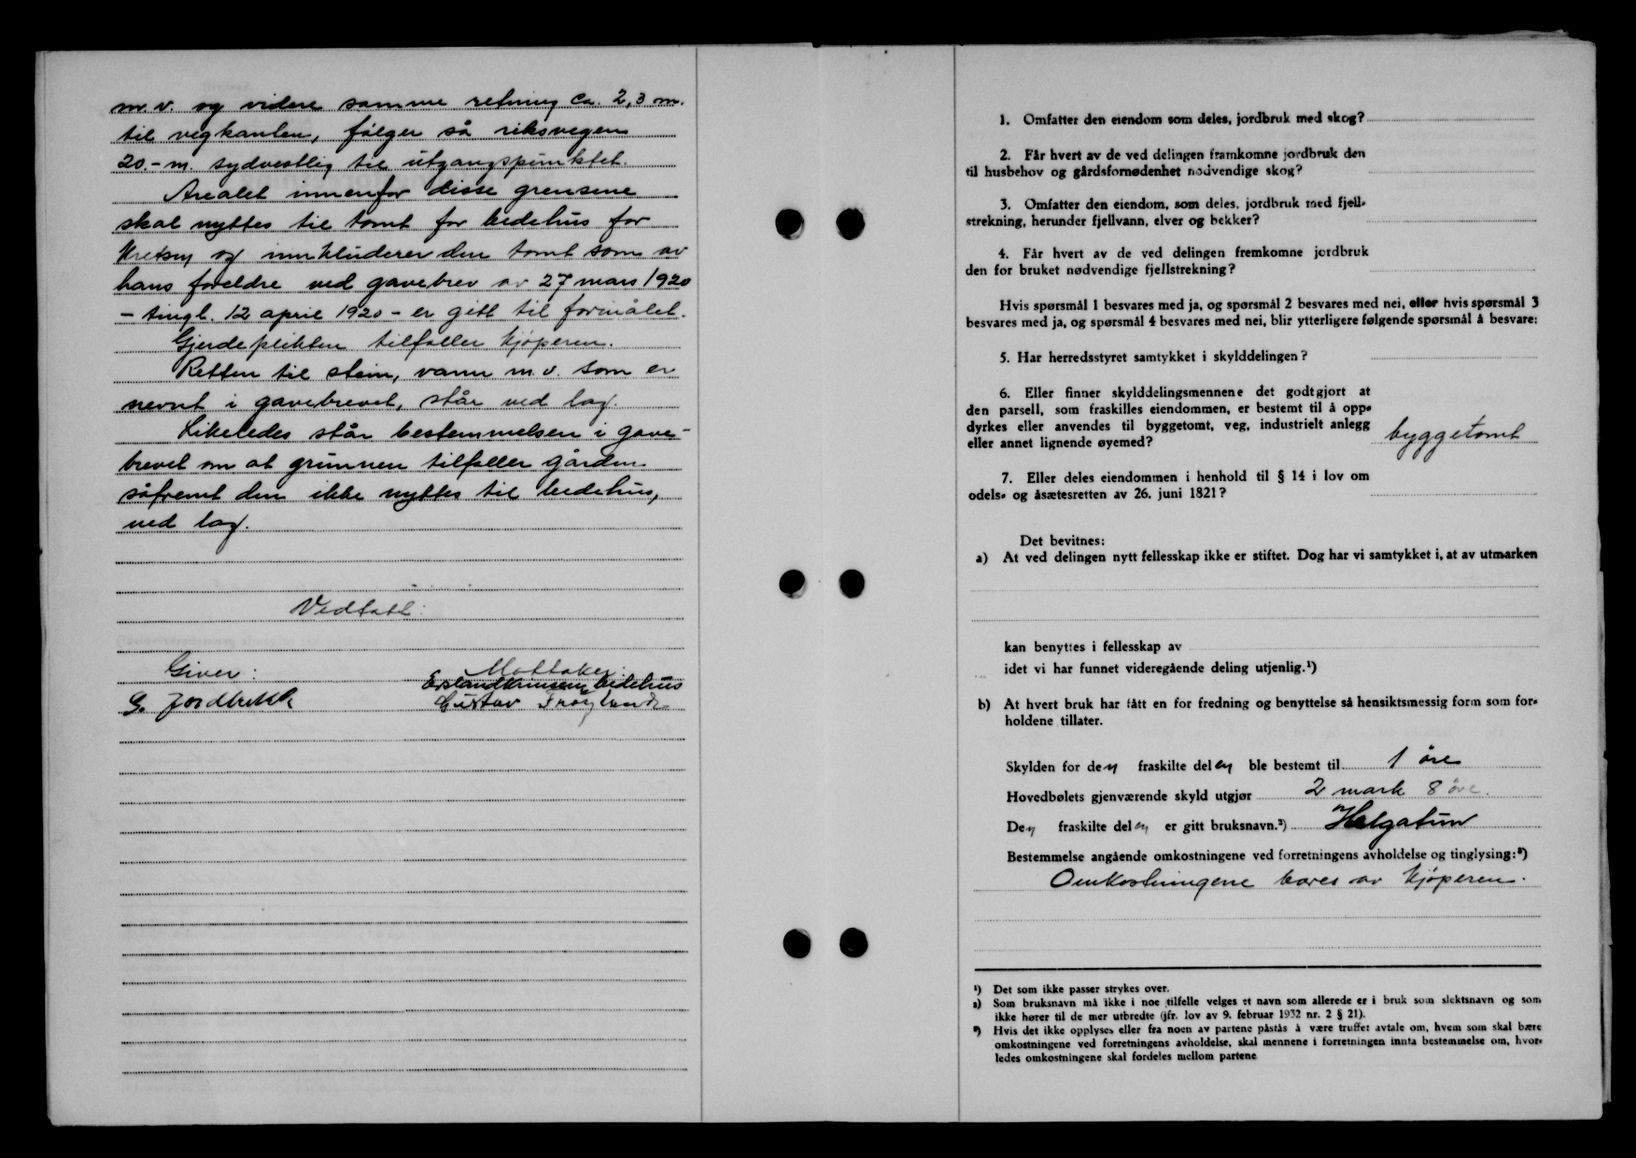 m.v. og videre samme retning ca. 2,3 m.
til vegkanten, følger så riksvegen
20.- m. sydvestlig til utgangspunktet.
Arealet innenfor disse grensene
skal nyttes til tomt for bedehus for
kretsen og innkluderer den tomt som av
hans foreldre ved gavebrev av 27 mars 1920
- tingl. 12 april 1920 - er gitt til formålet.
Gjerdeplikten tilfaller kjøperen.
Retten til stein, vann m.v. som er
nevnt i gavebrevet, står ved lag.
Likeledes står bestemmelsen i gave-
brevet om at grunnen tilfaller gården
såfremt den ikke nyttes til bedehus,
ved lag.
Vedtatt:
Giver:
Mottaker:
bedehus
G. Jordbrekk
Gustav Frøyland
1. Omfatter den eiendom som deles, jordbruk med skog?
2. Får hvert av de ved delingen framkomne jordbruk den
til husbehov og gårdsfornødenhet nødvendige skog?
3. Omfatter den eiendom, som deles, jordbruk med fjell-
strekning, herunder fjellvann, elver og bekker?
4. Får hvert av de ved delingen fremkomne jordbruk
den for bruket nødvendige fjellstrekning?
Hvis spørsmål 1 besvares med ja, og spørsmål 2 besvares med nei, eller hvis spørsmål 3
besvares med ja, og spørsmål 4 besvares med nei, blir ytterligere følgende spørsmål å besvare:
5. Har herredsstyret samtykket i skylddelingen?
6. Eller finner skylddelingsmennene det godtgjort at
den parsell, som fraskilles eiendommen, er bestemt til å opp-
dyrkes eller anvendes til byggetomt, veg, industrielt anlegg
eller annet lignende øyemed? byggetomt
7. Eller deles eiendommen i henhold til § 14 i lov om
odels- og åsætesretten av 26. juni 1821?
Det bevitnes:
a) At ved delingen nytt fellesskap ikke er stiftet. Dog har vi samtykket i, at av utmarken
kan benyttes i fellesskap av
idet vi har funnet videregående deling utjenlig.¹)
b) At hvert bruk har fått en for fredning og benyttelse så hensiktsmessig form som for-
holdene tillater.
Skylden for den fraskilte delen ble bestemt til 1 øre
Hovedbølets gjenværende skyld utgjør 2 mark 8 øre.
Den fraskilte delen er gitt bruksnavn.²) Helgatun
Bestemmelse angående omkostningene ved forretningens avholdelse og tinglysing:³)
Omkostningene bæres av kjøperen.
¹) Det som ikke passer strykes over.
²) Som bruksnavn må ikke i noe tilfelle velges et navn som allerede er i bruk som slektsnavn og som
ikke hører til de mer utbredte (jfr. lov av 9. februar 1932 nr. 2 § 21).
³) Hvis det ikke opplyses eller fra noen av partene påstås å være truffet avtale om, hvem som skal bære
omkostningene ved forretningens avholdelse, skal mennene i forretningen innta bestemmelse om, hvor-
ledes omkostningene skal fordeles mellom partene